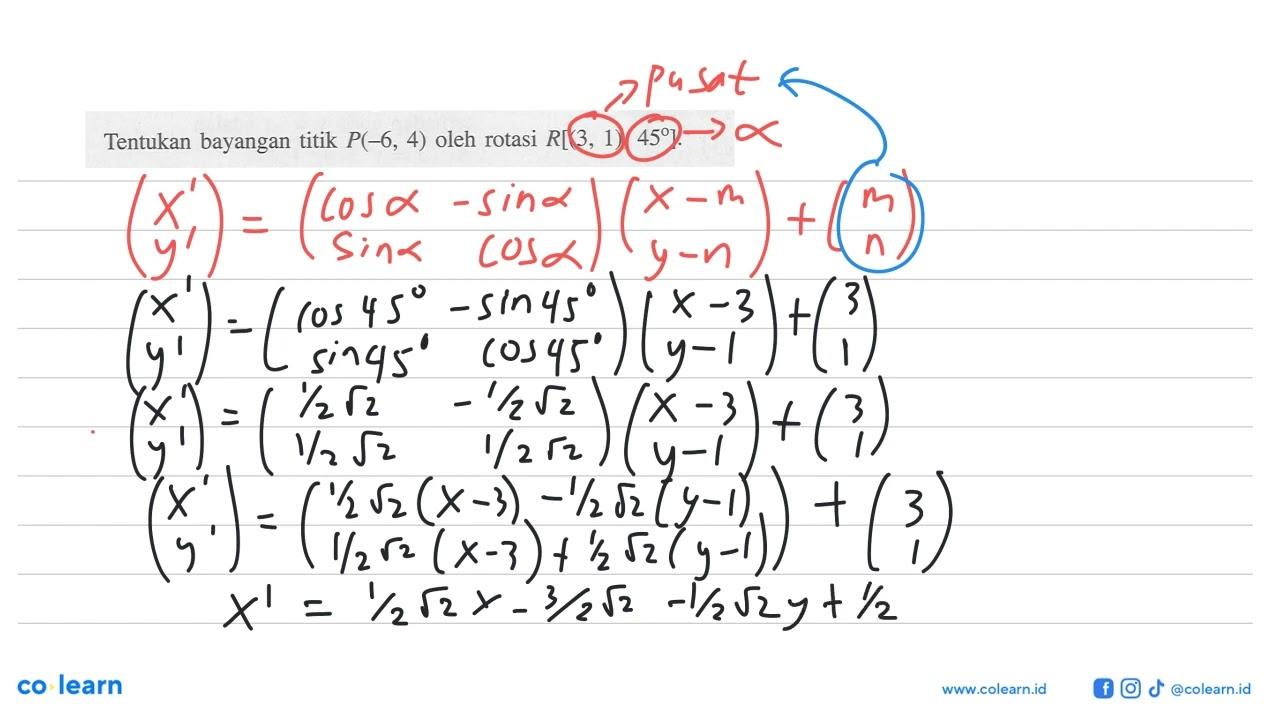 pusat
Tentukan bayangan titik P(–6, 4) oleh rotasi R[(3, 1), 45°]. → α
(x' y') = (cos α -sin α sin α cos α) (x - m y - n) + (m n)
(x' y') = (cos 45° -sin 45° sin 45° cos 45°) (x - 3 y - 1) + (3 1)
(x' y') = (1/2 √2 -1/2 √2 1/2 √2 1/2 √2) (x - 3 y - 1) + (3 1)
(x' y') = (1/2 √2 (x - 3) - 1/2 √2 (y - 1) 1/2 √2 (x - 3) + 1/2 √2 (y - 1)) + (3 1)
x' = 1/2 √2 x - 3/2 √2 - 1/2 √2 y + 1/2
co learn
www.colearn.id @colearn.id